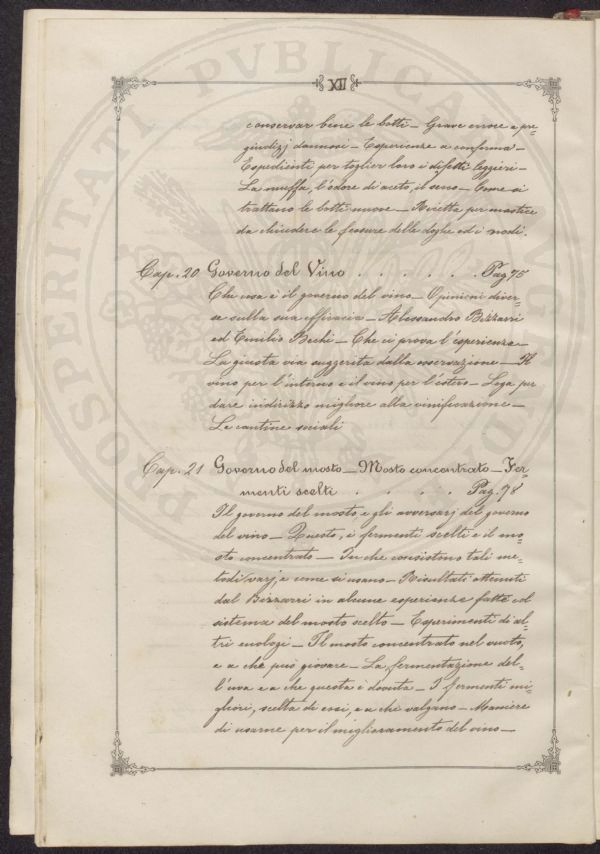 XII
conservar bene le botti — Grave errore e pre=
giudizj dannosi — Esperienze a conferma —
Espedienti per toglier loro i difetti leggieri —
La muffa, l'odore di aceto, il secco — Come si
trattano le botti nuove — Ricetta per mastice
da chiudere le fessure delle doghe ed i nodi.
Cap. 20 Governo del Vino . . . . . . Pag 75
Che cosa è il governo del vino — Opinioni diver=
se sulla sua efficacia — Alessandro Bizzarri
ed Emilio Bechi — Che ci prova l'esperienza —
La giusta via suggerita dalla osservazione — Il
vino per l'interno e il vino per l'estero — Lega per
dare indirizzo migliore alla vinificazione —
Le cantine sociali
Cap. 21 Governo del mosto — Mosto concentrato — Fer=
menti scelti . . . . . Pag. 78
Il governo del mosto, e gli avversarj del governo
del vino — Questo, i fermenti scelti e il mo=
sto concentrato — In che consistono tali me=
todi varj, e come si usano — Risultati ottenuti
dal Bizzarri in alcune esperienze fatte col
sistema del mosto scelto — Esperimenti di al=
tri enologi — Il mosto concentrato nel vuoto,
e a che può giovare — La fermentazione del=
l'uva e a che questa è dovuta — I fermenti mi=
gliori, scelta di essi, e a che valgano — Maniere
di usarne per il miglioramento del vino —
PROSPERITATI PVBLICAE AVGENDAE